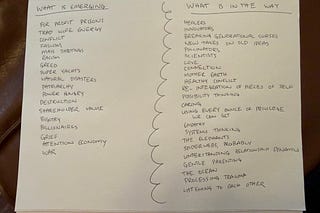 WHAT IS EMERGING
FOR PROFIT PRISONS
TRAD WIFE ENERGY
CONFLICT
FASCISM
MASS SHOOTINGS
RACISM
GREED
SUPER YACHTS
NATURAL DISASTERS
PATRIARCHY
POWER HUNGRY
DESTRUCTION
SHAREHOLDER VALUE
BIGOTRY
BILLIONAIRES
GRIEF
ATTENTION ECONOMY
WAR
WHAT IS IN THE WAY
HEALERS
INNOVATORS
BREAKING GENERATIONAL CURSES
NEW TAKES ON OLD IDEAS
POLLINATORS
SCIENTISTS
LOVE
CONNECTION
MOTHER EARTH
HEALTHY CONFLICT
RE-INTEGRATION OF PIECES OF SELF
POSSIBILITY THINKING
CARING
USING EVERY OUNCE OF PRIVILEGE
WE CAN GET
EMPATHY
SYSTEMS THINKING
THE ELEPHANTS
SPIDERWEBS, PROBABLY
UNDERSTANDING RELATIONSHIP DYNAMICS
GENTLE PARENTING
THE OCEAN
PROCESSING TRAUMA
LISTENING TO EACH OTHER